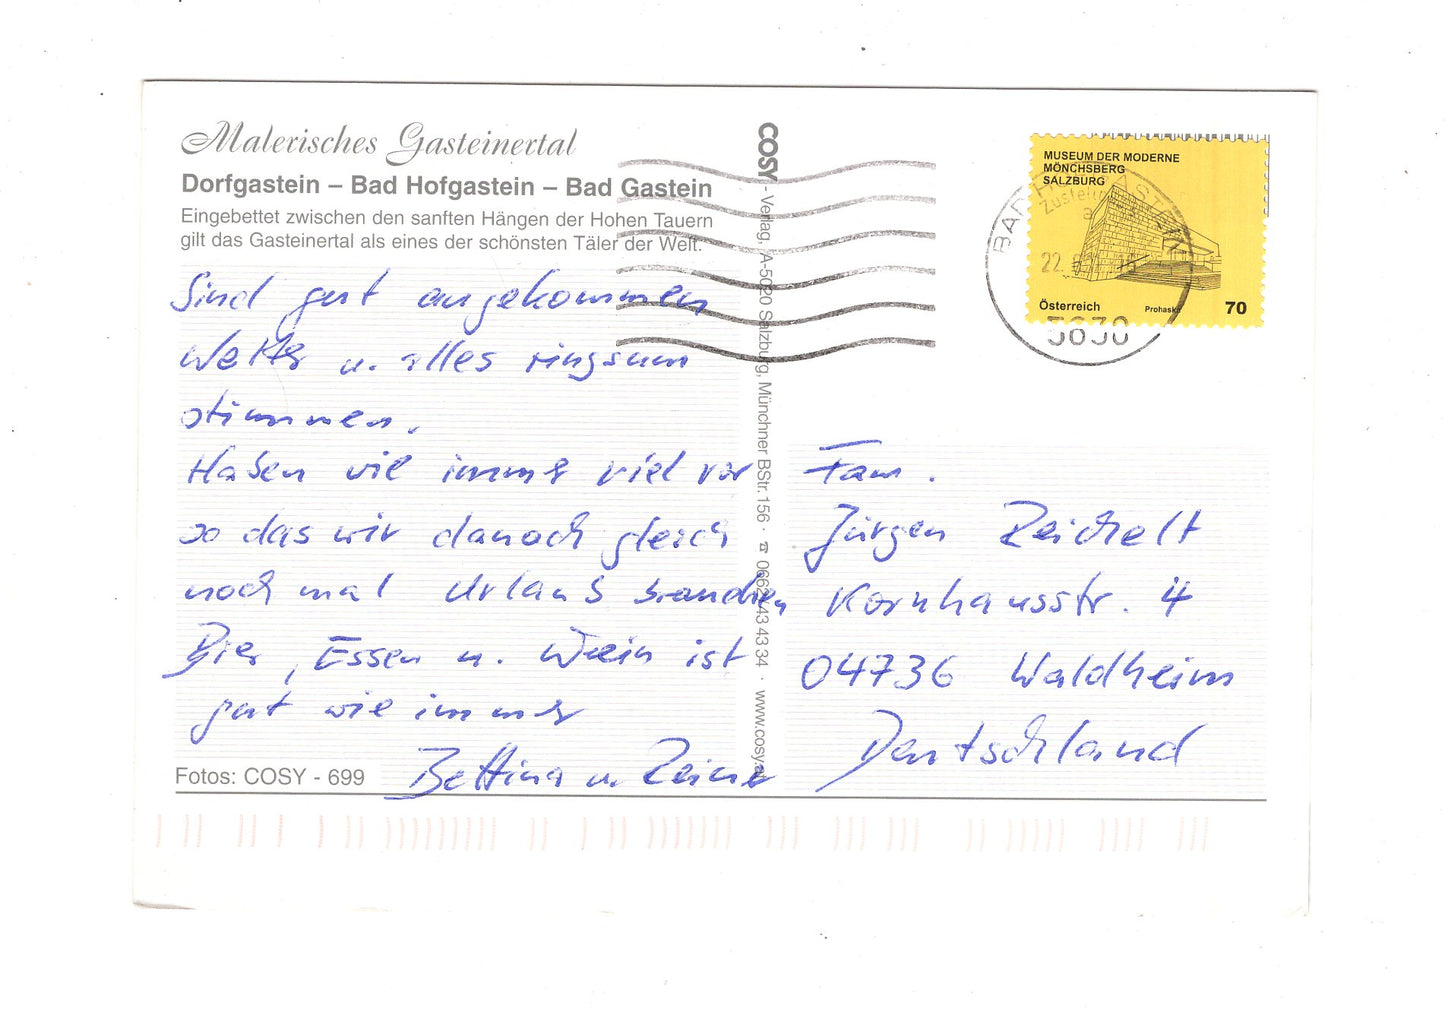 Malerisches Gasteinertal
Dorfgastein – Bad Hofgastein – Bad Gastein
Eingebettet zwischen den sanften Hängen der Hohen Tauern
gilt das Gasteinertal als eines der schönsten Täler der Welt.
Sind gut angekommen
Wetter u. alles ringsum
stimmen.
Haben wie immer viel vor
so das wir danach gleich
noch mal Urlaub brauchen
Bier, Essen u. Wein ist
gut wie immer
Bettina u. Reiner
Fotos: COSY - 699
COSY - Verlag, A-5020 Salzburg, Münchner BStr. 156 · ☎ 0662/43 43 34 · www.cosy.at
MUSEUM DER MODERNE
MÖNCHSBERG
SALZBURG
Österreich
Prohaska
70
BAD HOFGASTEIN
22.
5630
Fam.
Jürgen Reichelt
Kornhausstr. 4
04736 Waldheim
Deutschland